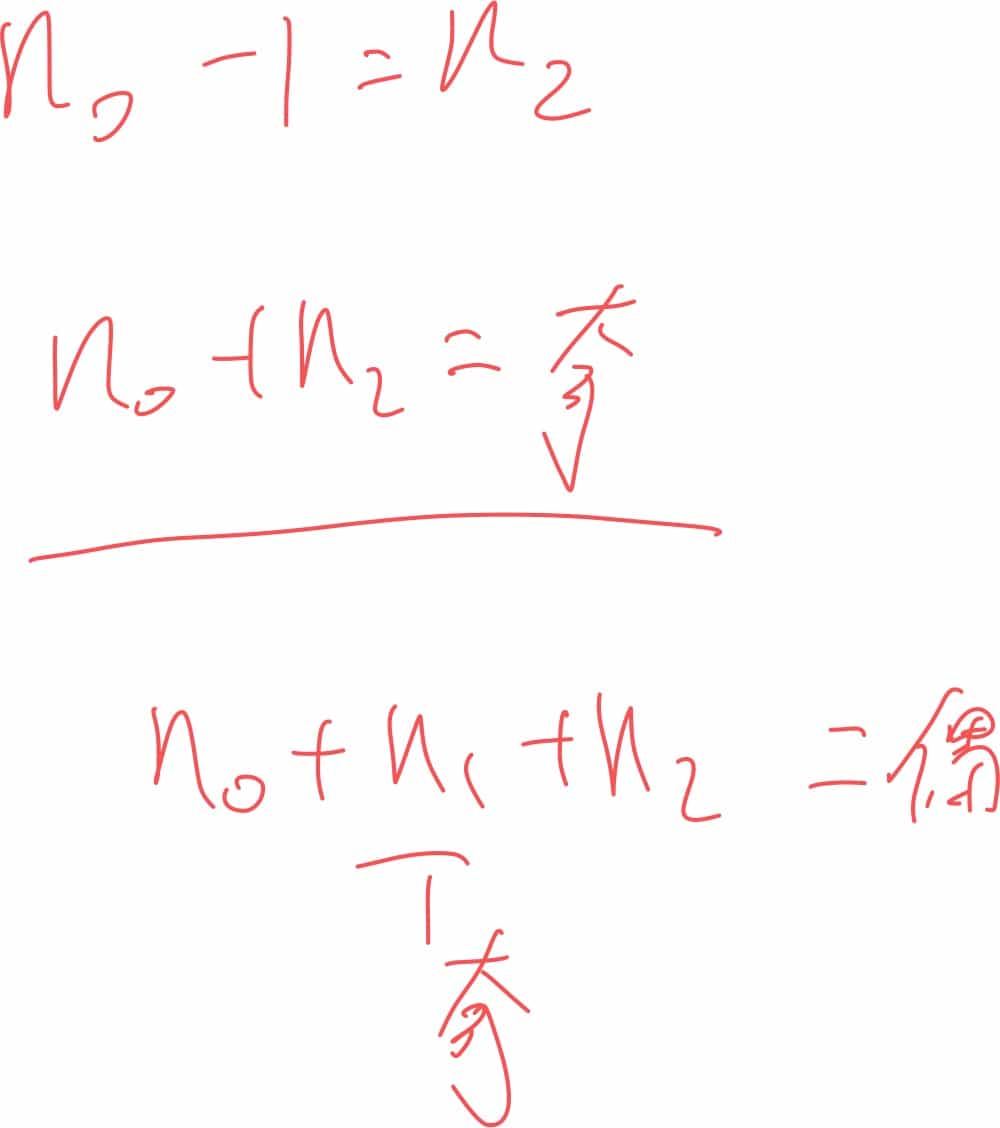 n₀ - 1 = n₂
n₀ + n₂ = 奇
n₀ + n₁ + n₂ = 偶
奇